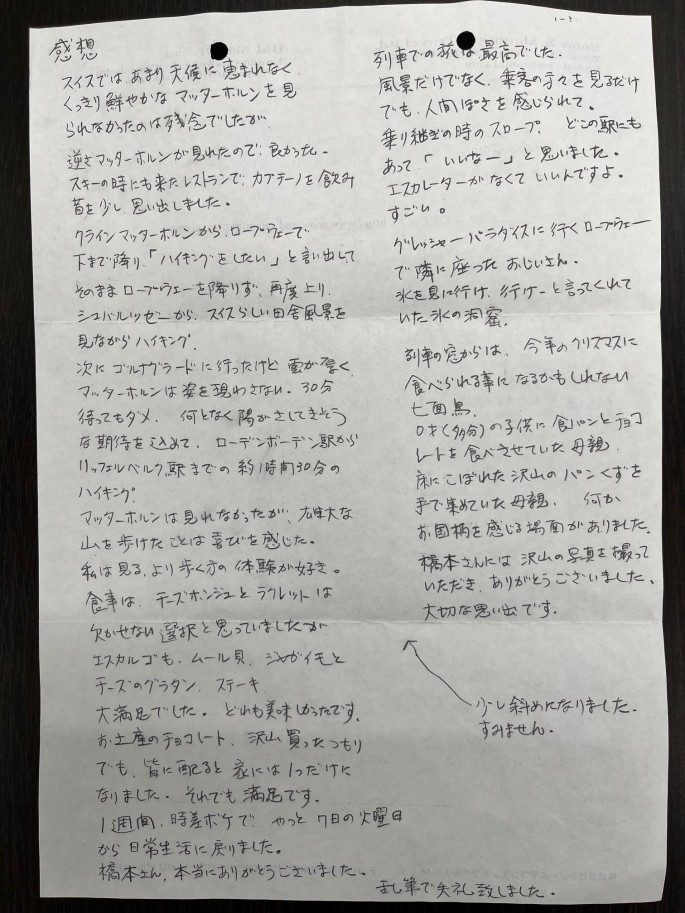 感想
スイスでは あまり 天候に恵まれなく
くっきり鮮やかな マッターホルンを見
られなかったのは残念でしたが
逆さマッターホルンが見れたので、良かった。
スキーの時にも来たレストランで、カプチーノを飲み
昔を少し、思い出しました。
クライン マッターホルンから、ロープウェーで
下まで降り、「ハイキングをしたい」と言い出して
そのまま ロープウェーを降りず、再度上り、
シュバルツゼーから、スイスらしい田舎風景を
見ながら ハイキング。
次に ゴルナグラードに行ったけど 雲が厚く、
マッターホルンは姿を現わさない。30分
待ってもダメ、何となく陽がさしてきそう
な期待を込めて、ローデンボーデン駅から
リッフェルベルク駅までの 約1時間30分の
ハイキング
マッターホルンは見れなかったが、雄大な
山を歩けたことは喜びを感じた。
私は見る、より歩く方の体験が好き。
食事は、チーズホンジュと ラクレットは
欠かせない選択と思っていましたが
エスカルゴも、ムール貝、ジャガイモと
チーズのグラタン、ステーキ
大満足でした。どれも美味しかったです。
お土産のチョコレート、沢山買ったつもり
でも、皆に配ると家には1つだけに
なりました。それでも満足です。
1週間、時差ボケで やっと7日の火曜日
から日常生活に戻りました。
橋本さん、本当にありがとうございました。
列車での旅は最高でした。
風景だけでなく、乗客の方々を見るだけ
でも、人間ぽさを感じられて。
乗り継ぎの時のスロープ、どこの駅にも
あって「いいなー」と思いました。
エスカレーターがなくて いいんですよ。
すごい。
グレッシャーパラダイスに行くロープウェー
で隣に座ったおじいさん。
氷を見に行け、行けーと言ってくれて
いた氷の洞窟。
列車の窓からは、今年のクリスマスに
食べられる事になるかもしれない
七面鳥。
0才(多分)の子供に食パンとチョコ
レートを食べさせていた母親。
床にこぼれた沢山のパンくずを
手で集めていた母親、何か
お国柄を感じる場面がありました。
橋本さんには沢山の写真を撮って
いただき、ありがとうございました。
大切な思い出です。
少し斜めになりました。
すみません。
乱筆で失礼致しました。